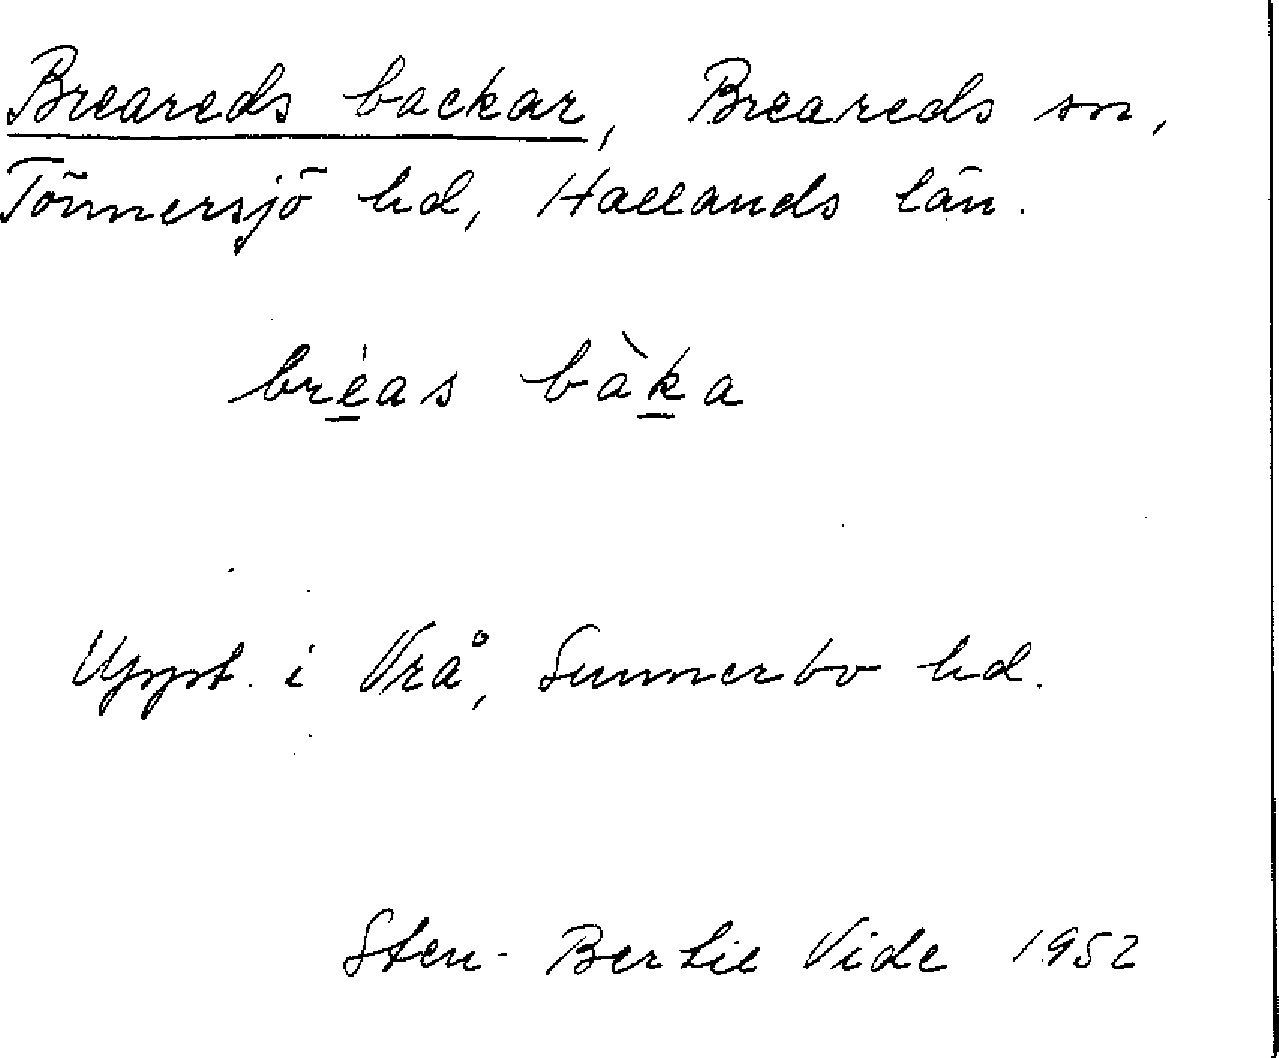 Breareds backar, Breareds sn,
Tönnersjö hd, Hallands län.
bréas bàka
Uppt. i Vrå, Sunnerbo hd.
Sten-Bertil Vide 1952